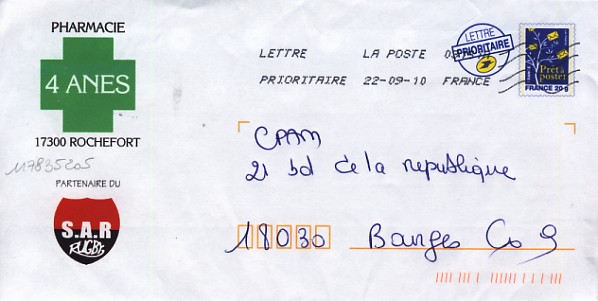 PHARMACIE
4 ANES
17300 ROCHEFORT
117835205
PARTENAIRE DU
S.A.R
RUGBY
LETTRE LA POSTE
PRIORITAIRE 22-09-10 FRANCE
LETTRE
PRIORITAIRE
Prêt à
poster
FRANCE 20g
CPAM
21 bd de la republique
18030 Bourges Ce 9